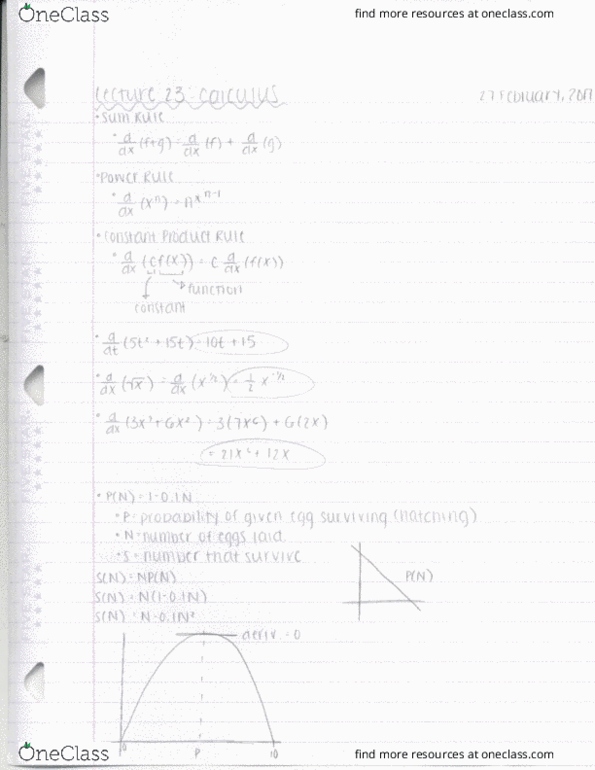 OneClass
find more resources at oneclass.com
Lecture 23: Calculus
27 February, 2017
• Sum Rule
• d/dx (f+g) = d/dx (f) + d/dx (g)
• Power Rule
• d/dx (xⁿ) = nxⁿ⁻¹
• Constant Product Rule
• d/dx (cf(x)) = c d/dx (f(x))
function
constant
• d/dt (5t² + 15t) = 10t + 15
• d/dx (√x) = d/dx (x^½) = ½ x^-½
• d/dx (3x⁷ + 6x²) = 3(7x⁶) + 6(2x)
= 21x⁶ + 12x
• P(N) = 1-0.1N
• P = probability of given egg surviving (hatching)
• N = number of eggs laid
• S = number that survive
P(N)
S(N) = NP(N)
S(N) = N(1-0.1N)
S(N) = N-0.1N²
deriv. = 0
0 P 10
OneClass
find more resources at oneclass.com